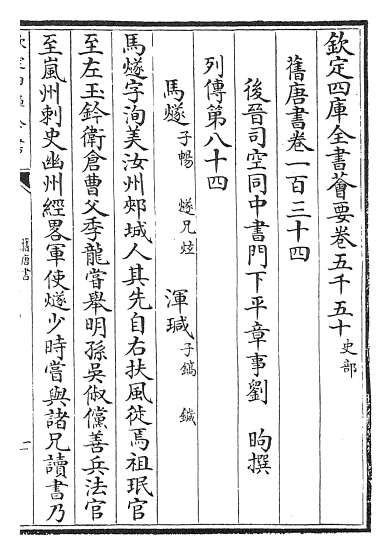 欽定四庫全書薈要卷五千五十 史部
舊唐書卷一百三十四
後晉司空同中書門下平章事劉 昫撰
列傳第八十四
馬燧 子暢 燧兄炫 渾瑊 子鎬 鐬
馬燧字洵美汝州郟城人其先自右扶風徙焉祖珉官
至左玉鈐衛倉曹父季龍嘗舉明孫吳俶儻善兵法官
至嵐州刺史幽州經畧軍使燧少時嘗與諸兄讀書乃
舊唐書